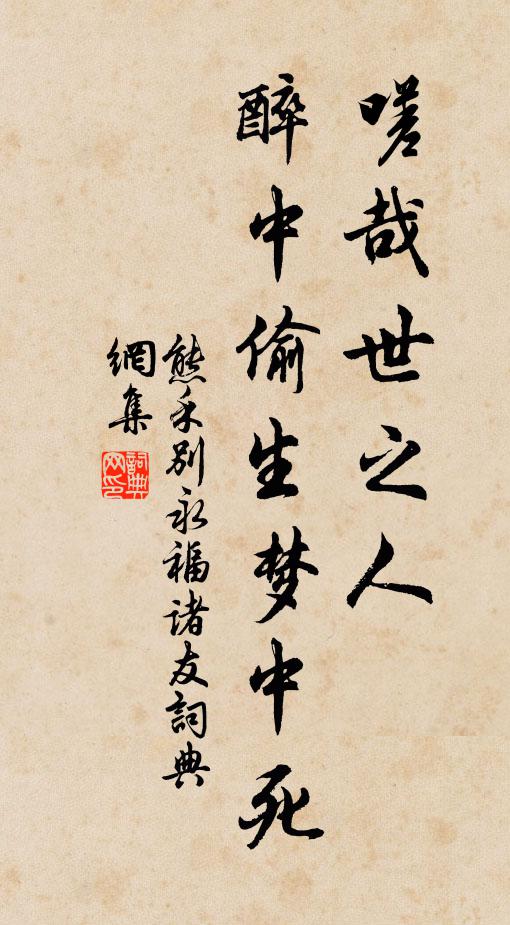 嗟哉世之人
醉中偷生梦中死
熊禾别永福諸友詞典
網集
詞典網印